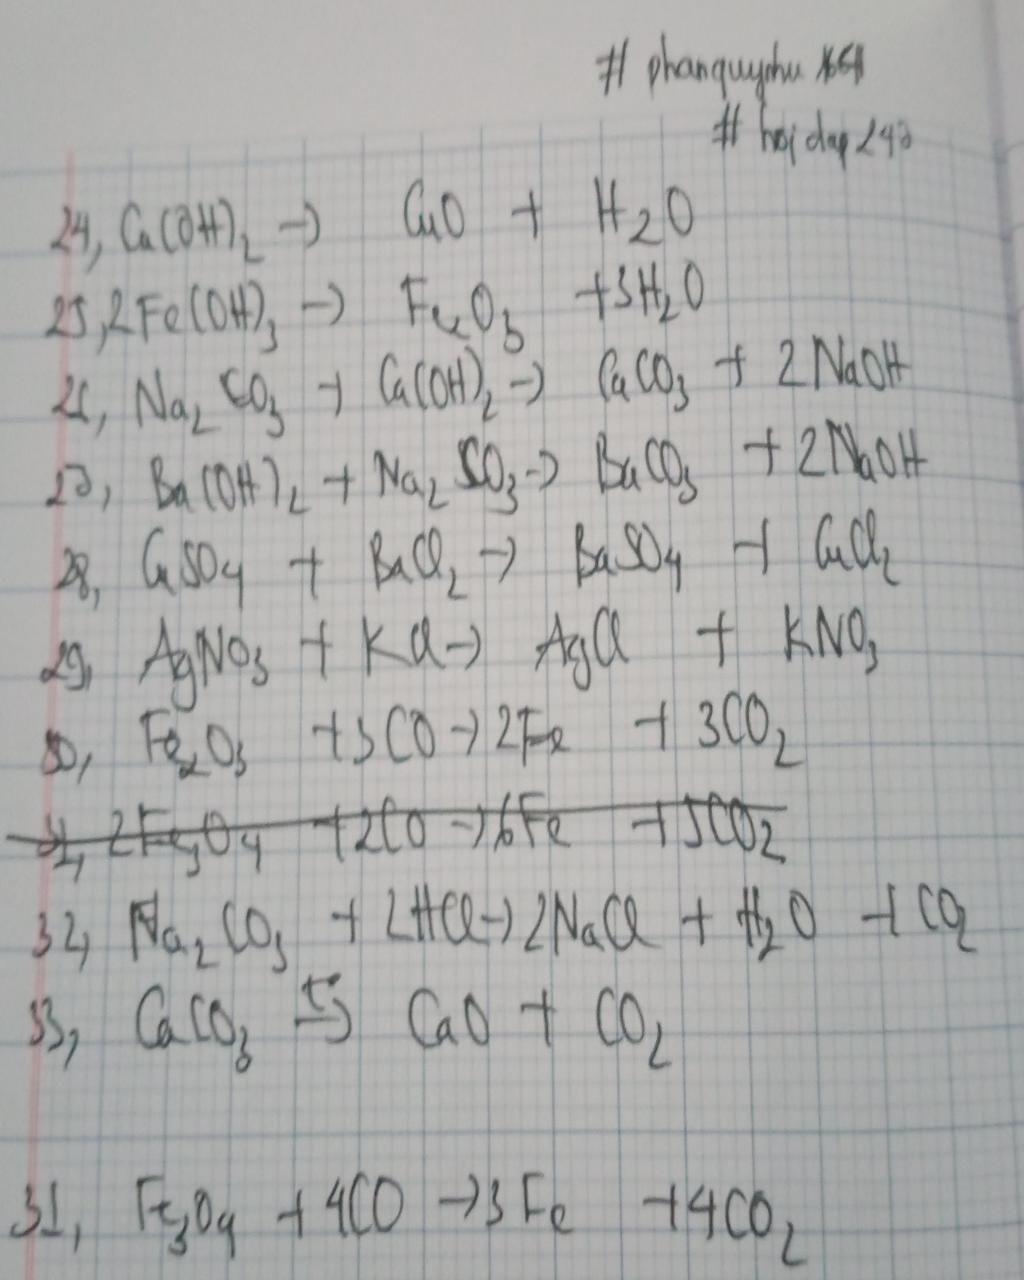 # phanquynhu
# hoidap247
24, Cu(OH)2 → CuO + H2O
25, 2Fe(OH)3 → Fe2O3 + 3H2O
26, Na2CO3 + Ca(OH)2 → CaCO3 + 2NaOH
27, Ba(OH)2 + Na2CO3 → BaCO3 + 2NaOH
28, CuSO4 + BaCl2 → BaSO4 + CuCl2
29, AgNO3 + KCl → AgCl + KNO3
30, Fe2O3 + 3CO → 2Fe + 3CO2
31, 2Fe3O4 + 2CO → 6Fe + 5CO2
32, Na2CO3 + 2HCl → 2NaCl + H2O + CO2
33, CaCO3 t° → CaO + CO2
31, Fe3O4 + 4CO → 3Fe + 4CO2